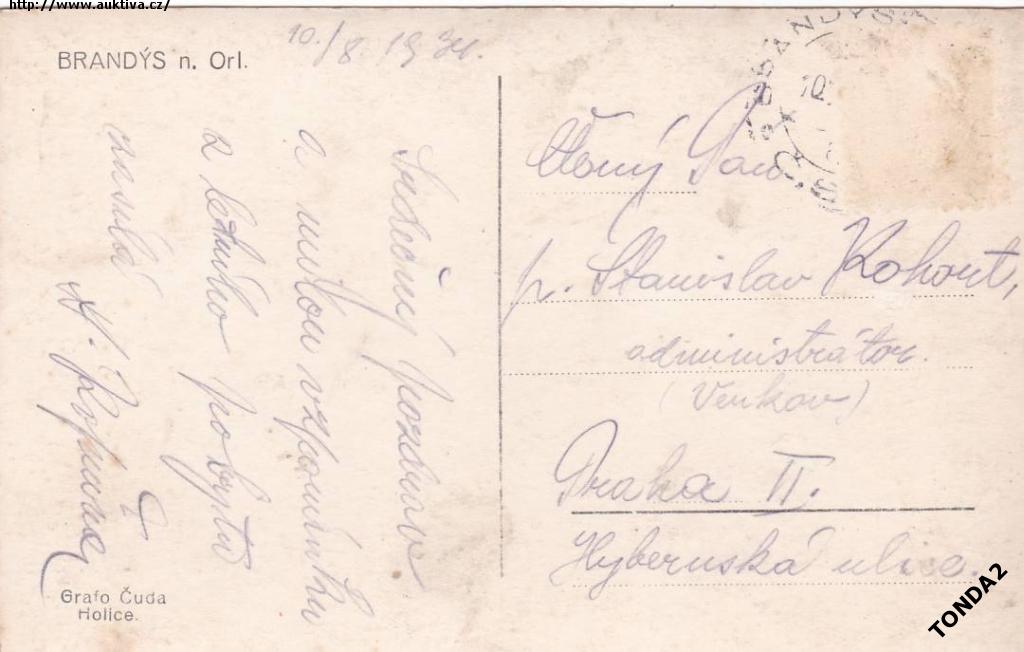 http://www.auktiva.cz/
BRANDÝS n. Orl.
10./8. 1934.
Srdečný pozdrav
a milou vzpomínku
z letního pobytu
zasílá
Grafo Čuda
Holice.
BRANDÝS
10.
Ctěný Pan
p. Stanislav Kohout,
administrátor.
(Venkov)
Praha II.
Hybernská ulice.
TONDA2